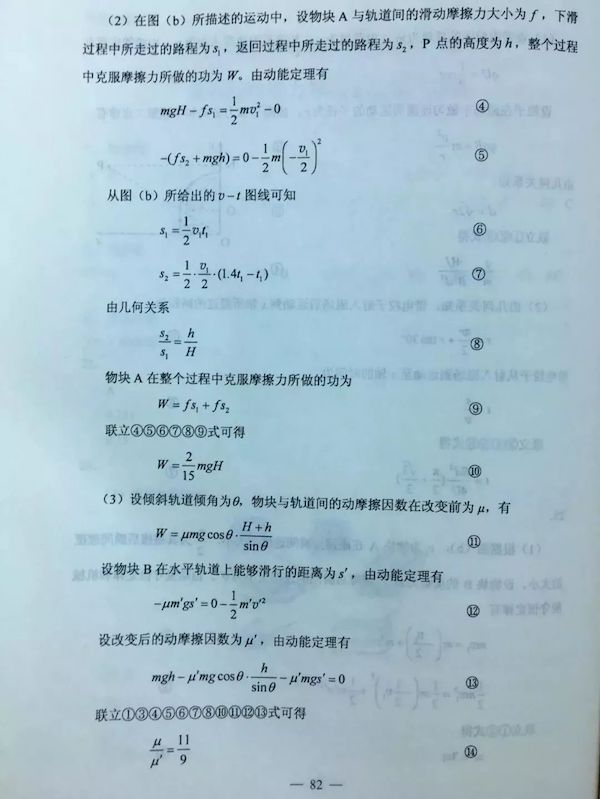 (2) 在图 (b) 所描述的运动中，设物块 A 与轨道间的滑动摩擦力大小为 f，下滑
过程中所走过的路程为 s₁，返回过程中所走过的路程为 s₂，P 点的高度为 h，整个过程
中克服摩擦力所做的功为 W。由动能定理有
mgH − fs₁ = 1/2 mv₁² − 0 ④
−(fs₂ + mgh) = 0 − 1/2 m(−v₁/2)² ⑤
从图 (b) 所给出的 v − t 图线可知
s₁ = 1/2 v₁t₁ ⑥
s₂ = 1/2 · v₁/2 · (1.4t₁ − t₁) ⑦
由几何关系
s₂/s₁ = h/H ⑧
物块 A 在整个过程中克服摩擦力所做的功为
W = fs₁ + fs₂ ⑨
联立④⑤⑥⑦⑧⑨式可得
W = 2/15 mgH ⑩
(3) 设倾斜轨道倾角为θ，物块与轨道间的动摩擦因数在改变前为 μ，有
W = μmg cosθ · (H + h)/sinθ ⑪
设物块 B 在水平轨道上能够滑行的距离为 s′，由动能定理有
−μm′gs′ = 0 − 1/2 m′v′² ⑫
设改变后的动摩擦因数为 μ′，由动能定理有
mgh − μ′mg cosθ · h/sinθ − μ′mgs′ = 0 ⑬
联立①③④⑤⑥⑦⑧⑩⑪⑫⑬式可得
μ/μ′ = 11/9 ⑭
— 82 —